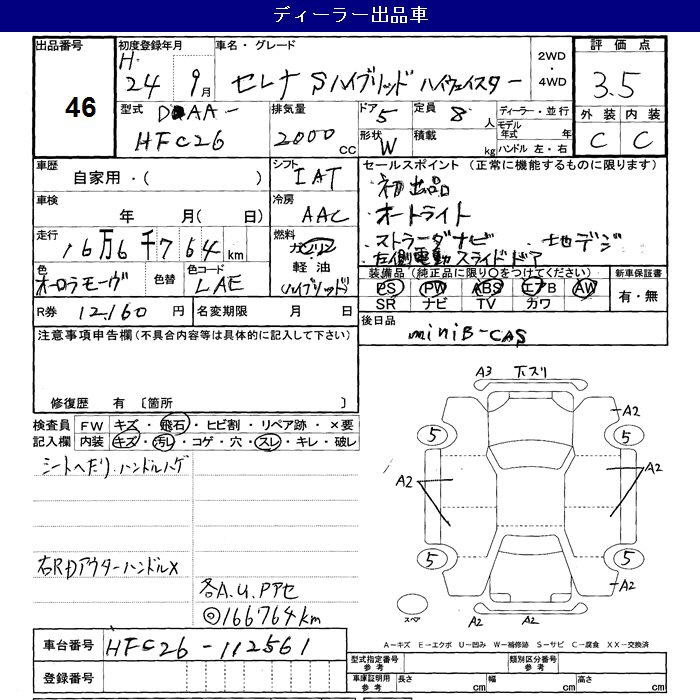 ディーラー出品車
出品番号
46
初度登録年月
H.
24 9月
車名・グレード
セレナ Sハイブリッド ハイウェイスター
2WD
・
4WD
評価点
3.5
外装 内装
C C
型式 DAA-
HFC26
排気量
2000 cc
ドア 5
定員 8 人
形状 W
積載 kg
ディーラー・並行
モデル年式 年
ハンドル 左・右
車歴
自家用・( )
シフト
IAT
車検
年 月( 日)
冷房
AAC
走行
16万6千764km
燃料
ガソリン
軽油
ハイブリッド
色
オーロラモーヴ
色替
色コード
LAE
R券 12,160 円
名変期限 月 日
セールスポイント (正常に機能するものに限ります)
・初出品
・オートライト
・ストラーダナビ ・地デジ
・左側電動スライドドア
装備品(純正品に限り○をつけてください)
PS PW ABS エアB AW
SR ナビ TV カワ
新車保証書
有・無
後日品
miniB-CAS
注意事項申告欄(不具合内容等は具体的に記入して下さい)
修復歴 有 〔箇所 〕
検査員記入欄
FW キズ・飛石・ヒビ割・リペア跡・×要
内装 キズ・汚レ・コゲ・穴・スレ・キレ・破レ
シートへたり、ハンドルハゲ
右RDアウターハンドル×
各A.U.Pアセ
◎166764km
車台番号 HFC26-112561
登録番号
A3 下スリ
A2
5
5
A2
A2
5
5
A2
スペア
A-キズ E-エクボ U-凹み W-補修跡 S-サビ C-腐食 XX-交換済
型式指定番号
参考
類別区分番号
参考
車庫証明用
参考
長さ cm
幅 cm
高さ cm